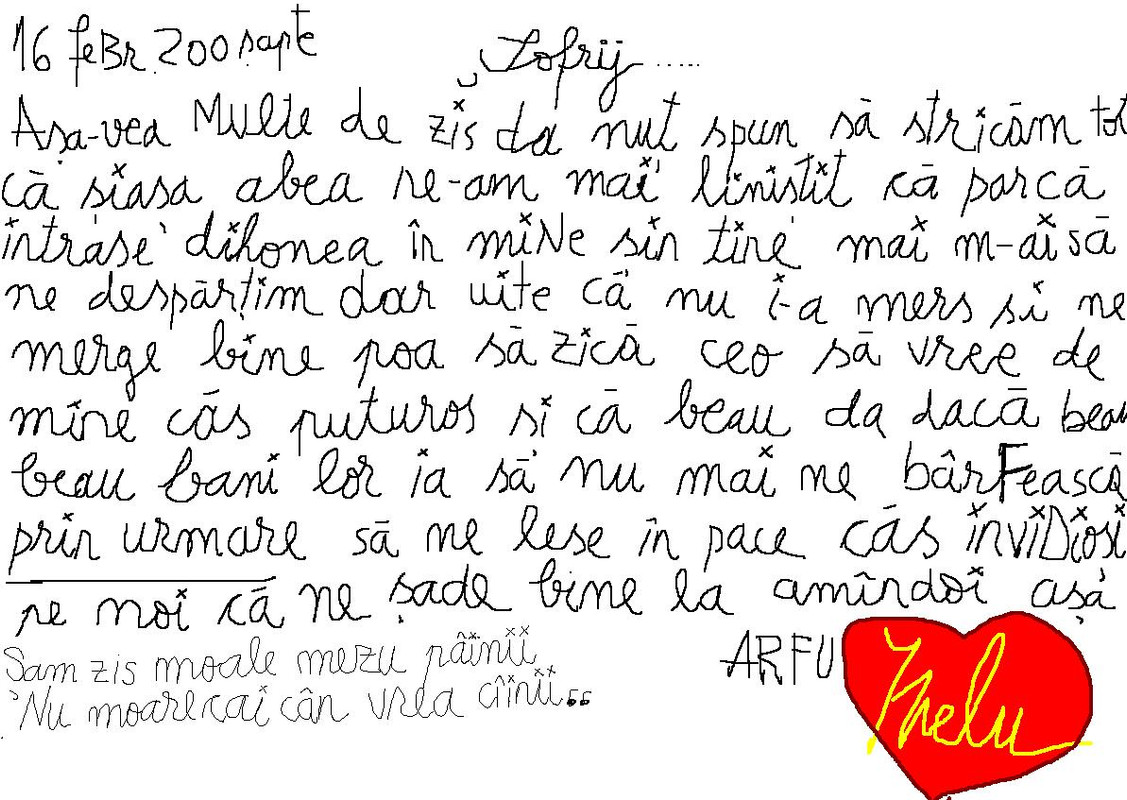 16 feBr 200 sapte
Lofrij .....
Aṣa-vea Multe de zis da nut spun să stricăm tot
că siasa abea ne-am mai linistit că parcă
intrase dihonea în miNe sin tine mai m-ai să
ne despărțim dar uite că nu i-a mers si ne
merge bine poa să zică ceo să vree de
mine căs puturos si că beau da dacă beau
beau bani lor ia să nu mai ne bârFească
prin urmare să ne lese în pace căs inviDiosi
pe noi că ne șade bine la amîndoi așa
Sam zis moale mezu pâinii
Nu moare cai cân vrea cîinii..
ARFU
Ghelu